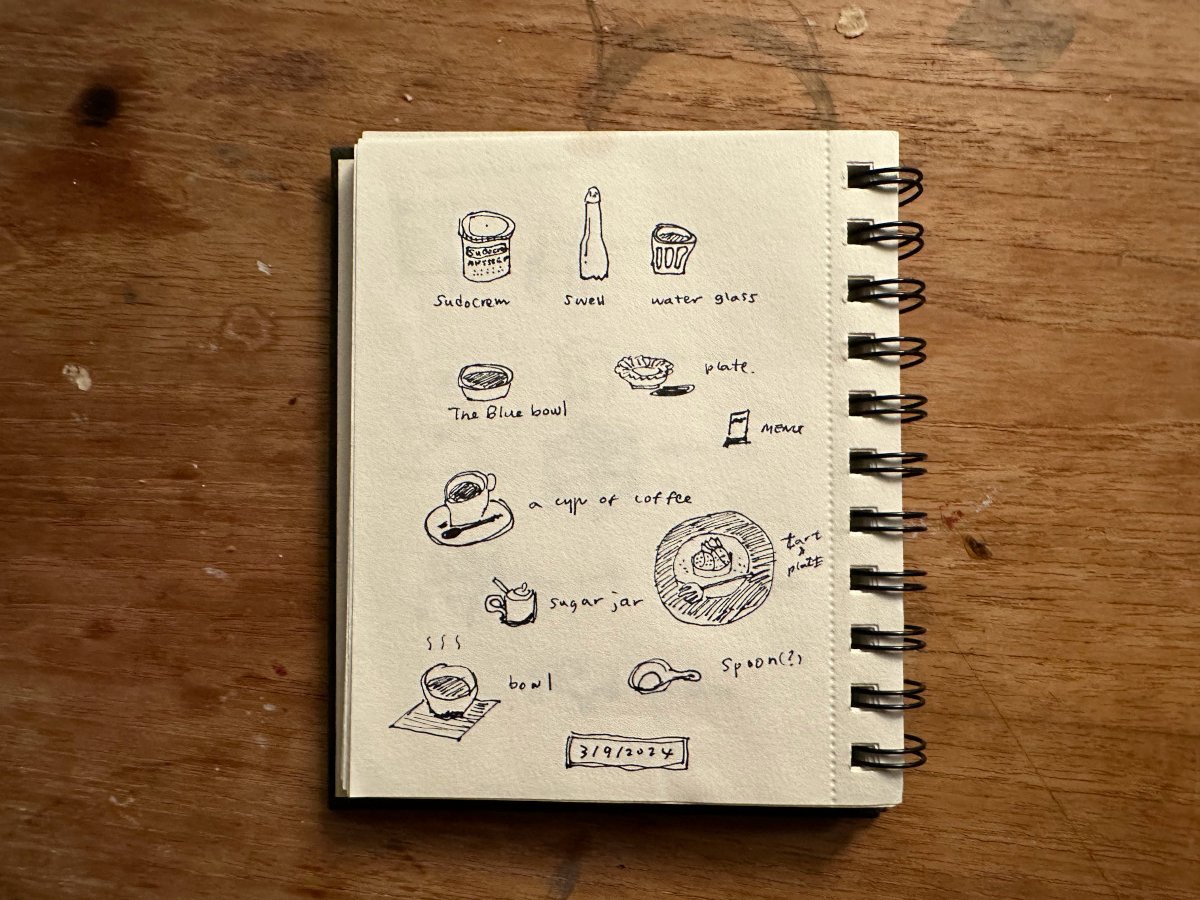 Sudocrem
Sudocrem
swell
water glass
The Blue bowl
plate.
MENU
a cup of coffee
tart
&
plate
sugar jar
bowl
spoon(?)
3/9/2024